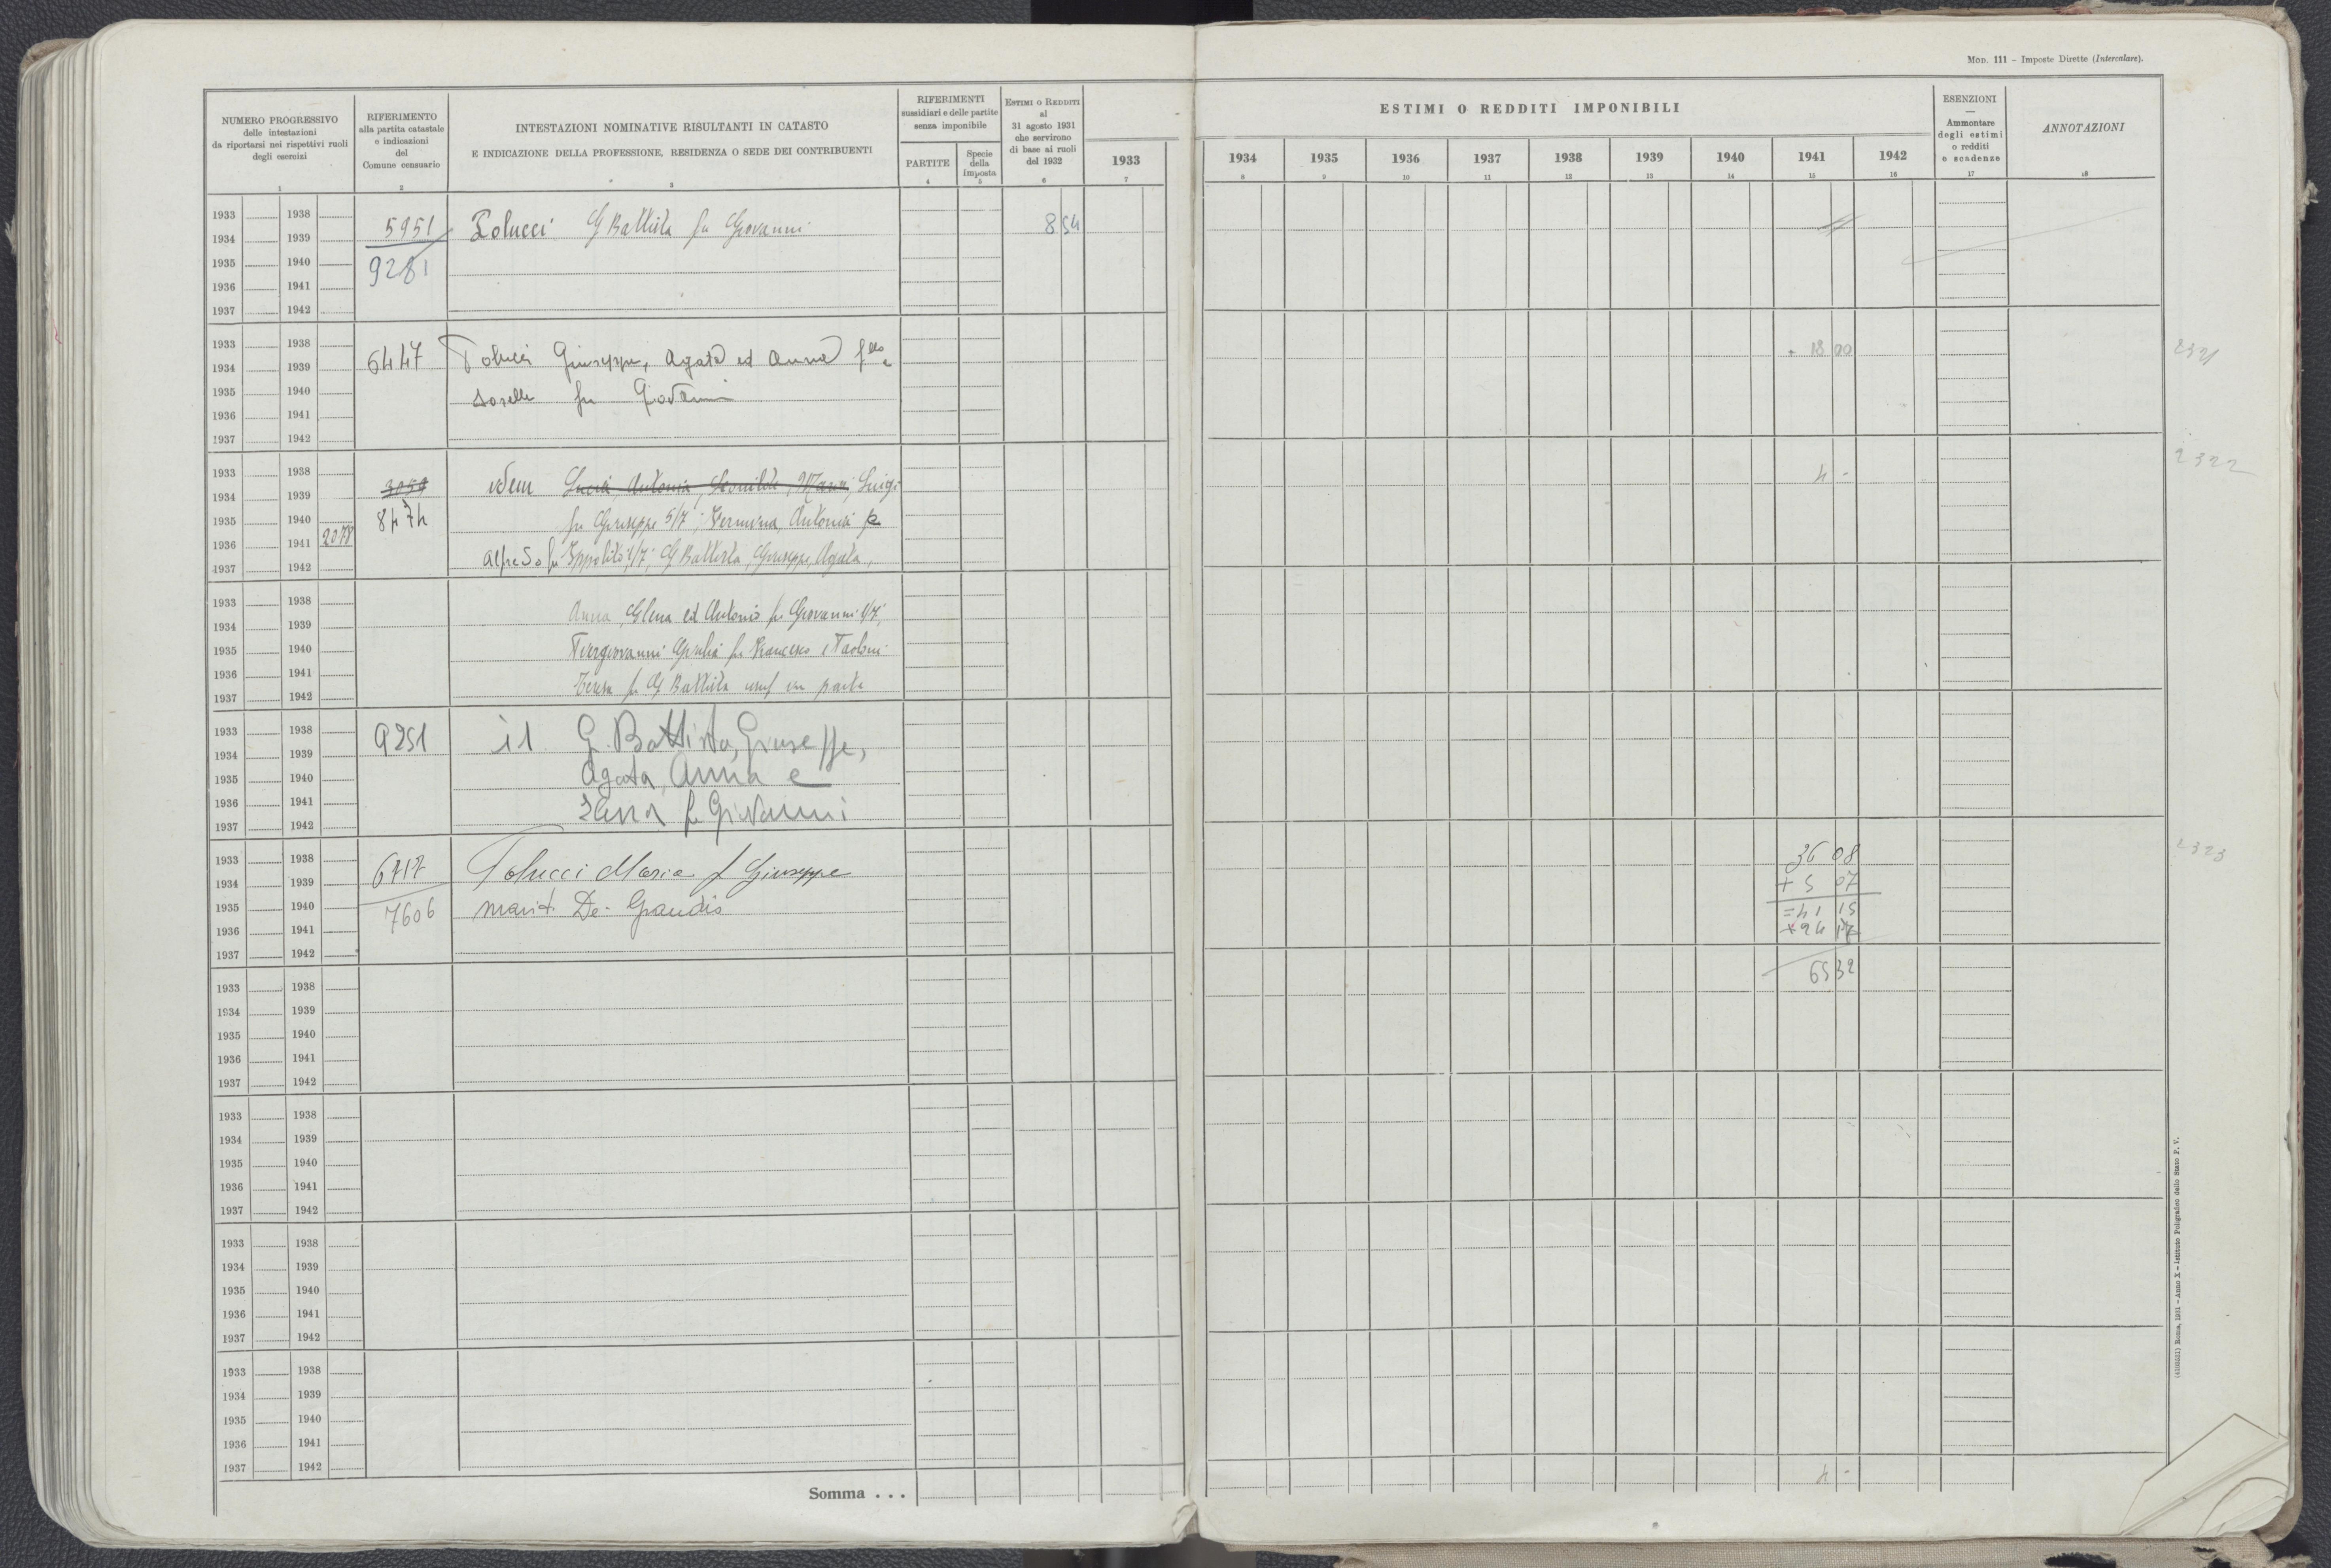 MOD. 111 – Imposte Dirette (Intercalare).
NUMERO PROGRESSIVO
delle intestazioni
da riportarsi nei rispettivi ruoli
degli esercizi
1
RIFERIMENTO
alla partita catastale
e indicazioni
del
Comune censuario
2
INTESTAZIONI NOMINATIVE RISULTANTI IN CATASTO
E INDICAZIONE DELLA PROFESSIONE, RESIDENZA O SEDE DEI CONTRIBUENTI
3
RIFERIMENTI
sussidiari e delle partite
senza imponibile
PARTITE
4
Specie
della
imposta
5
ESTIMI O REDDITI
al
31 agosto 1931
che servirono
di base ai ruoli
del 1932
6
ESTIMI O REDDITI IMPONIBILI
1933
7
1934
8
1935
9
1936
10
1937
11
1938
12
1939
13
1940
14
1941
15
1942
16
ESENZIONI
—
Ammontare
degli estimi
o redditi
e scadenze
17
ANNOTAZIONI
18
1933 1938
1934 1939 5951 Tolucci G Battista fu Giovanni 8 54
1935 1940 9281
1936 1941
1937 1942
1933 1938
1934 1939 6447 Tolucci Giuseppe, Agata ed Anna f.llo e 18 00 2321
1935 1940 sorelle fu Giovanni
1936 1941
1937 1942
1933 1938
1934 1939 3059 idem Lucia, Antonia, Leonilde, Maria, Luigi 4 - 2322
1935 1940 8474 fu Giuseppe 5/7; Fermina, Antonia e
1936 1941 2078
1937 1942 Alfredo fu Ippolito 1/7; G Battista, Giuseppe, Agata,
1933 1938 Anna, Elena ed Antonio fu Giovanni 1/7;
1934 1939
1935 1940 Piergiovanni Giulia fu Francesco e Paoloni
1936 1941
1937 1942 Teresa fu G Battista usuf in parte
1933 1938 9251 id G. Battista, Giuseppe,
1934 1939
1935 1940 Agata, Anna e
1936 1941
1937 1942 Elena fu Giovanni
1933 1938 36 08 2323
1934 1939 6717 Tolucci Maria f Giuseppe + 5 07
1935 1940 7606 marit. De Gaudis = 41 15
1936 1941 + 24 17
1937 1942
1933 1938 65 32
1934 1939
1935 1940
1936 1941
1937 1942
1933 1938
1934 1939
1935 1940
1936 1941
1937 1942
1933 1938
1934 1939
1935 1940
1936 1941
1937 1942
1933 1938
1934 1939
1935 1940
1936 1941
1937 1942
Somma . . . 4 -
(4103551) Roma, 1931 – Anno X – Istituto Poligrafico dello Stato P. V.